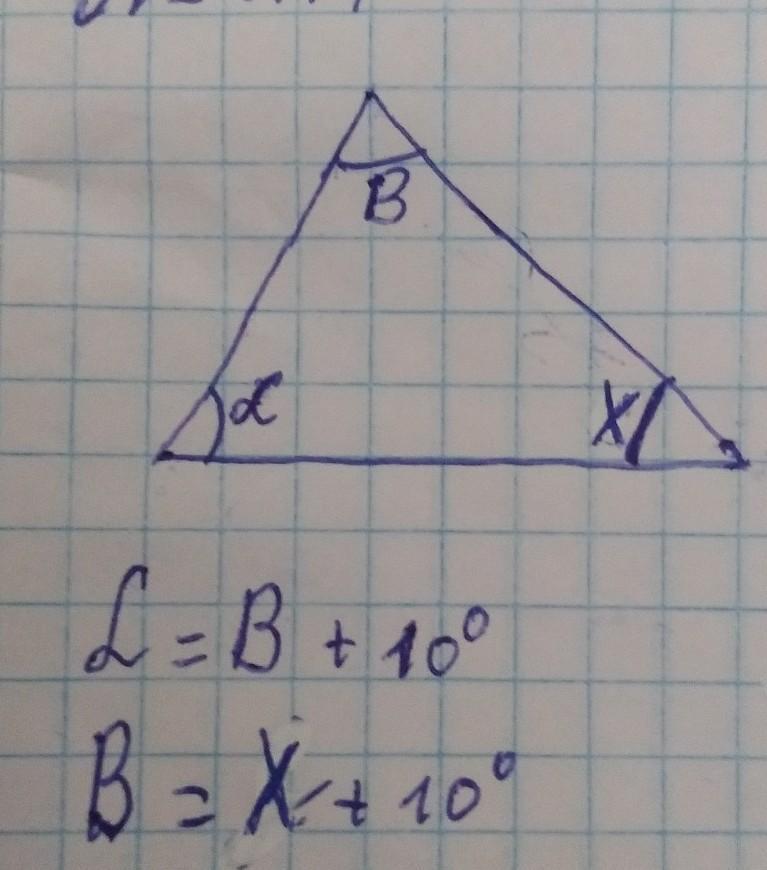 B
α
X
α = B + 10°
B = X + 10°